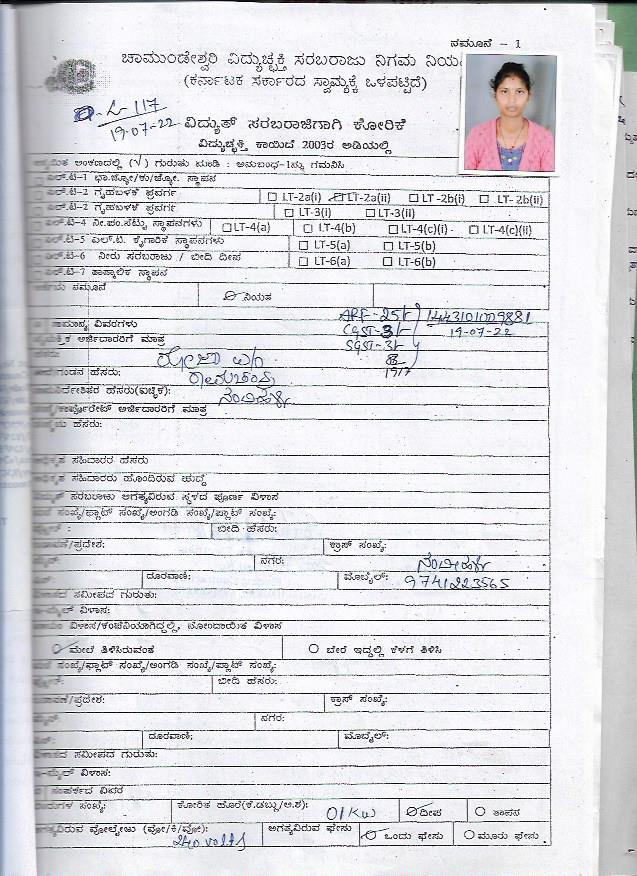 ನಮೂನೆ - 1
ಚಾಮುಂಡೇಶ್ವರಿ ವಿದ್ಯುಚ್ಛಕ್ತಿ ಸರಬರಾಜು ನಿಗಮ ನಿಯ
(ಕರ್ನಾಟಕ ಸರ್ಕಾರದ ಸ್ವಾಮ್ಯಕ್ಕೆ ಒಳಪಟ್ಟಿದೆ)
117
19-07-22
ವಿದ್ಯುತ್ ಸರಬರಾಜಿಗಾಗಿ ಕೋರಿಕೆ
ವಿದ್ಯುಚ್ಛಕ್ತಿ ಕಾಯಿದೆ 2003ರ ಅಡಿಯಲ್ಲಿ
ಅಂಕಣದಲ್ಲಿ (√) ಗುರುತು ಮಾಡಿ : ಅನುಬಂಧ-1ನ್ನು ಗಮನಿಸಿ
ಎಲ್.ಟಿ-1 ಭಾ.ಜ್ಯೋ/ಕು/ಜ್ಯೋ. ಸ್ಥಾಪನ
ಎಲ್.ಟಿ-2 ಗೃಹಬಳಕೆ ಪ್ರವರ್ಗ LT-2a(i) LT-2a(ii) LT-2b(i) LT-2b(ii)
ಎಲ್.ಟಿ-2 ಗೃಹಬಳಕೆ ಪ್ರವರ್ಗ LT-3(i) LT-3(ii)
ಎಲ್.ಟಿ-4 ನೀ.ಪಂ.ಸೆಟ್ಟು ಸ್ಥಾಪನಗಳು LT-4(a) LT-4(b) LT-4(c)(i) LT-4(c)(ii)
ಎಲ್.ಟಿ-5 ಎಲ್.ಟಿ. ಕೈಗಾರಿಕೆ ಸ್ಥಾಪನಗಳು LT-5(a) LT-5(b)
ಎಲ್.ಟಿ-6 ನೀರು ಸರಬರಾಜು / ಬೀದಿ ದೀಪ LT-6(a) LT-6(b)
ಎಲ್.ಟಿ-7 ತಾತ್ಕಾಲಿಕ ಸ್ಥಾಪನ
ನಮೂನೆ ನಿಯತ
ARF-25/- 1443101009881
ಸಾಮಾನ್ಯ ವಿವರಗಳು CGST-3/- 19-07-22
ಅರ್ಜಿದಾರರಿಗೆ ಮಾತ್ರ SGST-3/-
ಹೆಸರು: ರೋಜಾ w/o
ಗಂಡನ ಹೆಸರು: ರಾಮಚಂದ್ರ
ಹೆಸರು(ಐಚ್ಛಿಕ):
ಕಾರ್ಪೊರೇಟ್ ಅರ್ಜಿದಾರರಿಗೆ ಮಾತ್ರ
ಹೆಸರು:
ಸಹಿದಾರರ ಹೆಸರು
ಸಹಿದಾರರು ಹೊಂದಿರುವ ಹುದ್ದೆ
ವಿದ್ಯುತ್ ಸರಬರಾಜು ಅಗತ್ಯವಿರುವ ಸ್ಥಳದ ಪೂರ್ಣ ವಿಳಾಸ
ಸಂಖ್ಯೆ/ಫ್ಲಾಟ್ ಸಂಖ್ಯೆ/ಅಂಗಡಿ ಸಂಖ್ಯೆ/ಪ್ಲಾಟ್ ಸಂಖ್ಯೆ:
ಬೀದಿ ಹೆಸರು:
ಬಡಾವಣೆ/ಪ್ರದೇಶ: ಕ್ರಾಸ್ ಸಂಖ್ಯೆ:
ನಗರ:
ದೂರವಾಣಿ: ಮೊಬೈಲ್: 9741223565
ಸಮೀಪದ ಗುರುತು:
ಇ-ಮೈಲ್ ವಿಳಾಸ:
ವಿಳಾಸ/ಕಂಪೆನಿಯಾಗಿದ್ದಲ್ಲಿ, ನೋಂದಾಯಿತ ವಿಳಾಸ
ಮೇಲೆ ತಿಳಿಸಿರುವಂತೆ ಬೇರೆ ಇದ್ದಲ್ಲಿ ಕೆಳಗೆ ತಿಳಿಸಿ
ಸಂಖ್ಯೆ/ಫ್ಲಾಟ್ ಸಂಖ್ಯೆ/ಅಂಗಡಿ ಸಂಖ್ಯೆ/ಪ್ಲಾಟ್ ಸಂಖ್ಯೆ:
ಬೀದಿ ಹೆಸರು:
ಬಡಾವಣೆ/ಪ್ರದೇಶ: ಕ್ರಾಸ್ ಸಂಖ್ಯೆ:
ನಗರ:
ದೂರವಾಣಿ: ಮೊಬೈಲ್:
ಸಮೀಪದ ಗುರುತು:
ಇ-ಮೈಲ್ ವಿಳಾಸ:
ಸಂಪರ್ಕದ ವಿವರ
ಸಂಖ್ಯೆ: ಕೋರಿಕೆ ಹೊರೆ(ಕೆ.ಡಬ್ಲ್ಯು/ಅ.ಶ): 01Kw ದೀಪ ತಾಪನ
ಅಗತ್ಯವಿರುವ ವೋಲ್ಟೇಜು (ವೋ/ಕಿ/ವೋ): 240 volts ಅಗತ್ಯವಿರುವ ಫೇಸು ಒಂದು ಫೇಸು ಮೂರು ಫೇಸು